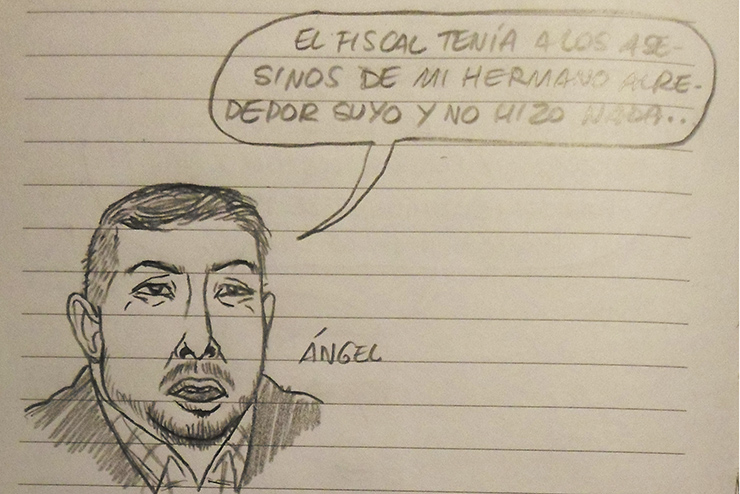 EL FISCAL TENÍA A LOS ASE-
SINOS DE MI HERMANO ALRE-
DEDOR SUYO Y NO HIZO NADA..
ÁNGEL